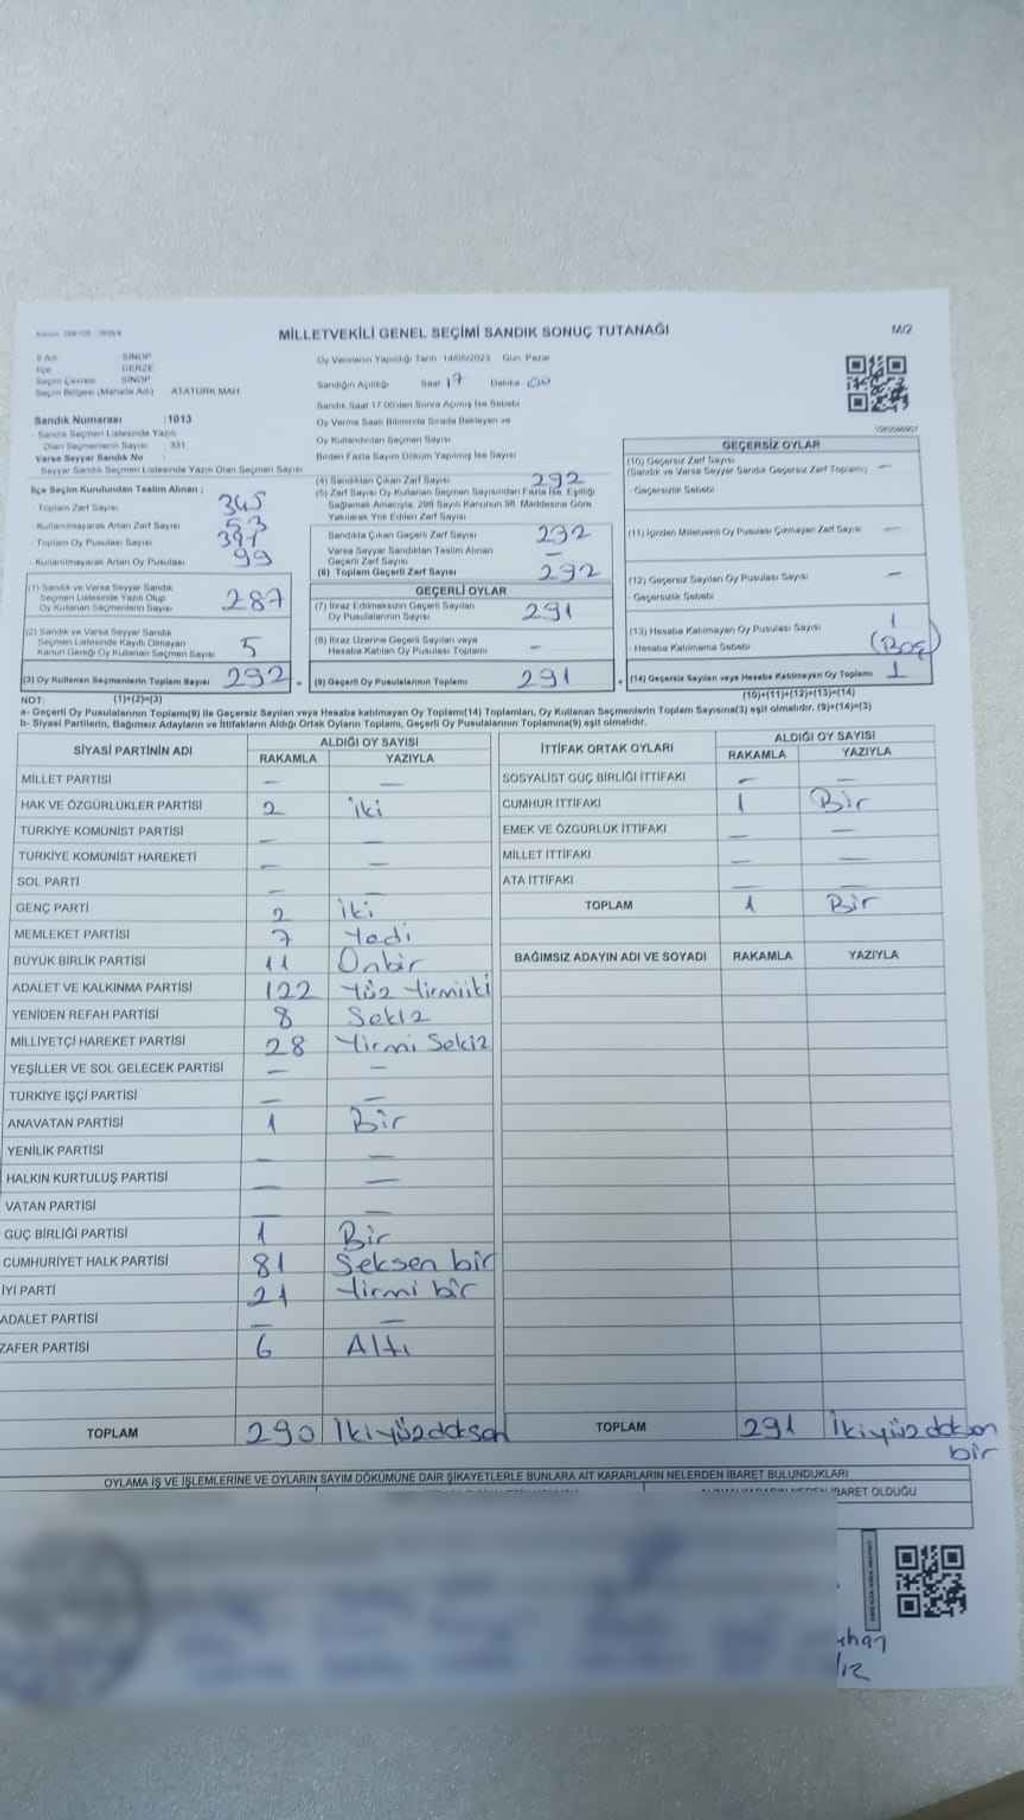 MİLLETVEKİLİ GENEL SEÇİMİ SANDIK SONUÇ TUTANAĞI
M/2
İl Adı SİNOP
İlçe GERZE
Seçim Çevresi SİNOP
Seçim Bölgesi (Mahalle Adı) ATATÜRK MAH.
Oy Vermenin Yapıldığı Tarih 14/05/2023 Gün Pazar
Sandığın Açıldığı Saat 17 Dakika 00
Sandık Saat 17.00'den Sonra Açılmış İse Sebebi
Sandık Numarası : 1013
Sandık Seçmen Listesinde Yazılı
Olan Seçmenlerin Sayısı : 331
Varsa Seyyar Sandık No
Seyyar Sandık Seçmen Listesinde Yazılı Olan Seçmen Sayısı
Oy Verme Saati Bitiminde Sırada Bekleyen ve
Oy Kullandırılan Seçmen Sayısı
Birden Fazla Sayım Döküm Yapılmış İse Sayısı
İlçe Seçim Kurulundan Teslim Alınan ;
Toplam Zarf Sayısı 345
Kullanılmayarak Artan Zarf Sayısı 53
Toplam Oy Pusulası Sayısı 391
Kullanılmayarak Artan Oy Pusulası 99
(1) Sandık ve Varsa Seyyar Sandık
Seçmen Listesinde Yazılı Olup
Oy Kullanan Seçmenlerin Sayısı 287
(2) Sandık ve Varsa Seyyar Sandık
Seçmen Listesinde Kayıtlı Olmayan
Kanun Gereği Oy Kullanan Seçmen Sayısı 5
(3) Oy Kullanan Seçmenlerin Toplam Sayısı 292 =
(4) Sandıktan Çıkan Zarf Sayısı 292
(5) Zarf Sayısı Oy Kullanan Seçmen Sayısından Fazla İse, Eşitliği
Sağlamak Amacıyla, 298 Sayılı Kanunun 98. Maddesine Göre
Yakılarak Yok Edilen Zarf Sayısı
Sandıkta Çıkan Geçerli Zarf Sayısı 292
Varsa Seyyar Sandıktan Teslim Alınan
Geçerli Zarf Sayısı –
(6) Toplam Geçerli Zarf Sayısı 292
GEÇERLİ OYLAR
(7) İtiraz Edilmeksizin Geçerli Sayılan
Oy Pusulalarının Sayısı 291
(8) İtiraz Üzerine Geçerli Sayılan veya
Hesaba Katılan Oy Pusulası Toplamı –
(9) Geçerli Oy Pusulalarının Toplamı 291 +
GEÇERSİZ OYLAR
(10) Geçersiz Zarf Sayısı –
(Sandık ve Varsa Seyyar Sandık Geçersiz Zarf Toplamı)
Geçersizlik Sebebi
(11) İçinden Milletvekili Oy Pusulası Çıkmayan Zarf Sayısı –
(12) Geçersiz Sayılan Oy Pusulası Sayısı –
Geçersizlik Sebebi
(13) Hesaba Katılmayan Oy Pusulası Sayısı 1
Hesaba Katılmama Sebebi (Boş)
(14) Geçersiz Sayılan veya Hesaba Katılmayan Oy Toplamı 1
NOT: (1)+(2)=(3)
(10)+(11)+(12)+(13)=(14)
a- Geçerli Oy Pusulalarının Toplamı(9) ile Geçersiz Sayılan veya Hesaba katılmayan Oy Toplamı(14) Toplamları, Oy Kullanan Seçmenlerin Toplam Sayısına(3) eşit olmalıdır. (9)+(14)=(3)
b- Siyasi Partilerin, Bağımsız Adayların ve İttifakların Aldığı Ortak Oyların Toplamı, Geçerli Oy Pusulalarının Toplamına(9) eşit olmalıdır.
SİYASİ PARTİNİN ADI
ALDIĞI OY SAYISI
RAKAMLA YAZIYLA
MİLLET PARTİSİ – –
HAK VE ÖZGÜRLÜKLER PARTİSİ 2 iki
TÜRKİYE KOMÜNİST PARTİSİ – –
TÜRKİYE KOMÜNİST HAREKETİ – –
SOL PARTİ – –
GENÇ PARTİ 2 iki
MEMLEKET PARTİSİ 7 Yedi
BÜYÜK BİRLİK PARTİSİ 11 Onbir
ADALET VE KALKINMA PARTİSİ 122 Yüz Yirmiiki
YENİDEN REFAH PARTİSİ 8 Sekiz
MİLLİYETÇİ HAREKET PARTİSİ 28 Yirmi Sekiz
YEŞİLLER VE SOL GELECEK PARTİSİ – –
TÜRKİYE İŞÇİ PARTİSİ – –
ANAVATAN PARTİSİ 1 Bir
YENİLİK PARTİSİ – –
HALKIN KURTULUŞ PARTİSİ – –
VATAN PARTİSİ – –
GÜÇ BİRLİĞİ PARTİSİ 1 Bir
CUMHURİYET HALK PARTİSİ 81 Seksen bir
İYİ PARTİ 21 Yirmi bir
ADALET PARTİSİ – –
ZAFER PARTİSİ 6 Altı
TOPLAM 290 İkiyüzdoksan
İTTİFAK ORTAK OYLARI
ALDIĞI OY SAYISI
RAKAMLA YAZIYLA
SOSYALİST GÜÇ BİRLİĞİ İTTİFAKI – –
CUMHUR İTTİFAKI 1 Bir
EMEK VE ÖZGÜRLÜK İTTİFAKI – –
MİLLET İTTİFAKI – –
ATA İTTİFAKI – –
TOPLAM 1 Bir
BAĞIMSIZ ADAYIN ADI VE SOYADI RAKAMLA YAZIYLA
TOPLAM 291 İkiyüz doksan
bir
OYLAMA İŞ VE İŞLEMLERİNE VE OYLARIN SAYIM DÖKÜMÜNE DAİR ŞİKAYETLERLE BUNLARA AİT KARARLARIN NELERDEN İBARET BULUNDUKLARI
İBARET OLDUĞU